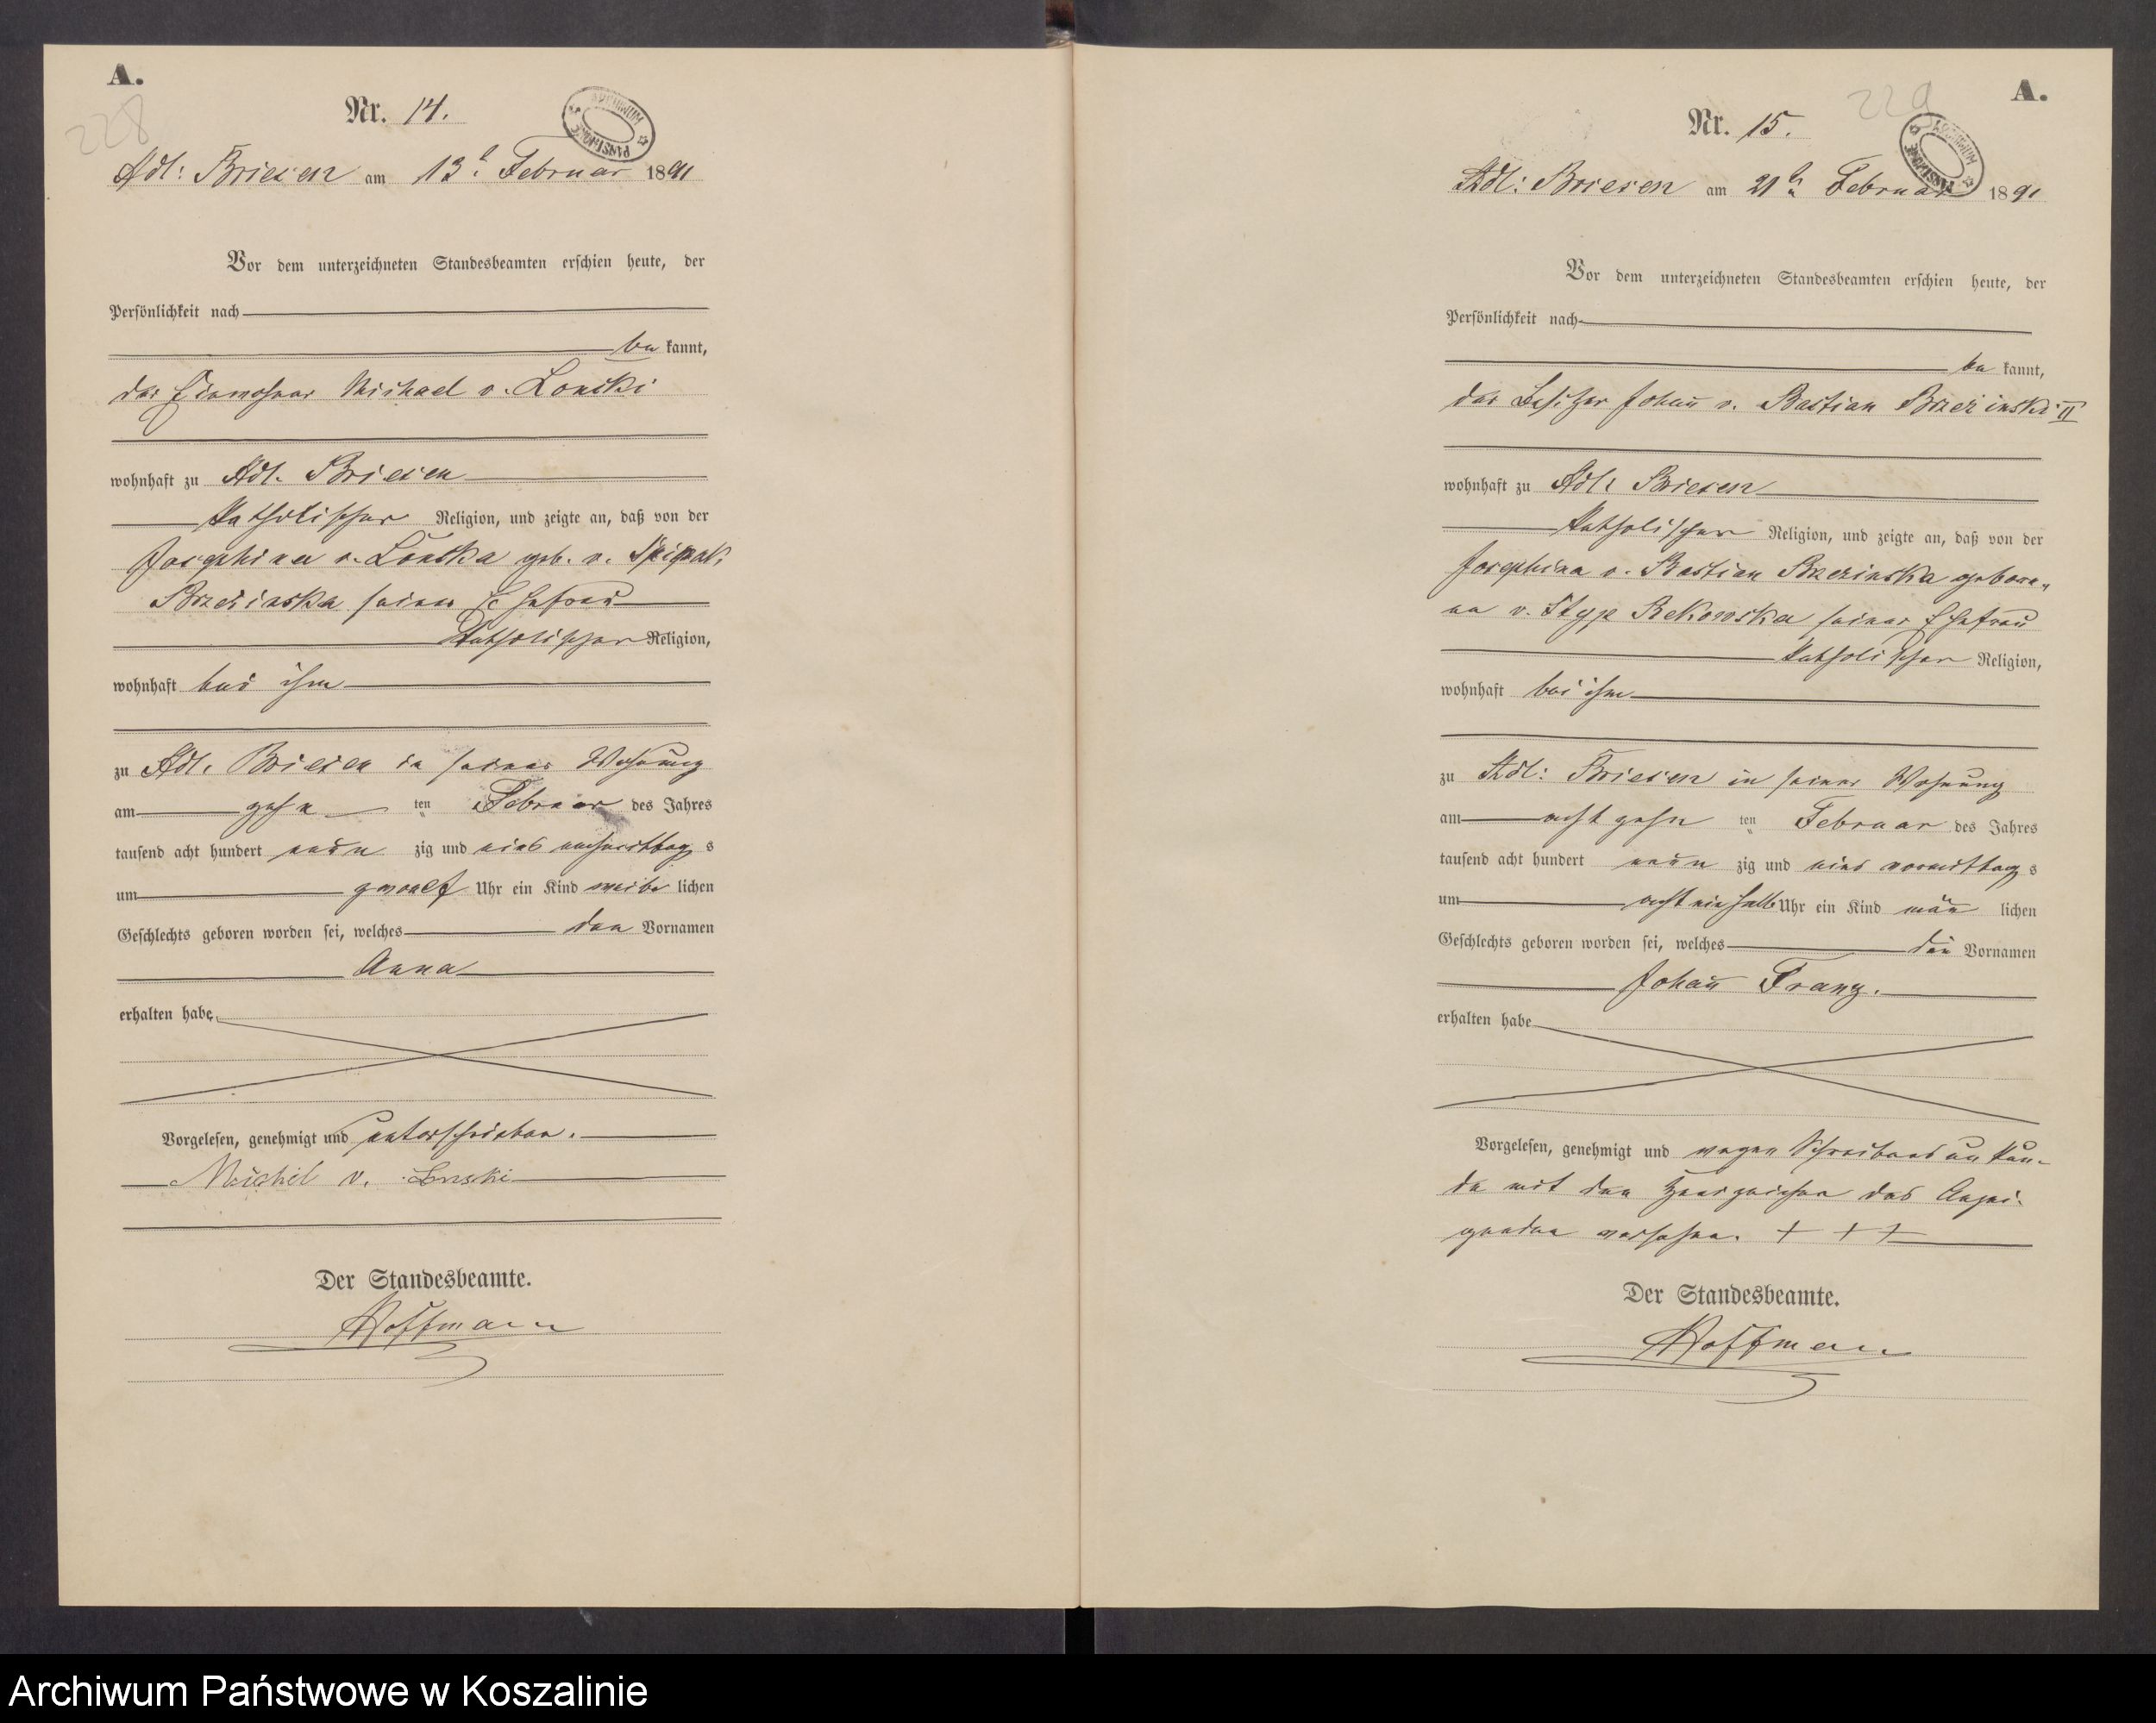 A.
228
Nr. 14.
ARCHIWUM PAŃSTWOWE
Adl: Briesen am 13t. Februar 1891
Vor dem unterzeichneten Standesbeamten erschien heute, der
Persönlichkeit nach
be kannt,
der Michael v. Lonski
wohnhaft zu Adl. Briesen
katholischer Religion, und zeigte an, daß von der
Josephina v. Lonska geb. v.
Brzezinska seiner Ehefrau
katholischer Religion,
wohnhaft bei ihm
zu Adl. Briesen in seiner Wohnung
am zehn ten Februar des Jahres
tausend acht hundert neun zig und eins nachmittag s
um zwoelf Uhr ein Kind weib lichen
Geschlechts geboren worden sei, welches den Vornamen
Anna
erhalten habe
Vorgelesen, genehmigt und unterschrieben.
Michel v. Lonski
Der Standesbeamte.
Hoffmann
A.
229
Nr. 15.
ARCHIWUM PAŃSTWOWE
Adl: Briesen am 21ten Februar 1891
Vor dem unterzeichneten Standesbeamten erschien heute, der
Persönlichkeit nach
be kannt,
der Besitzer Johañ v. Bastian Brzezinski II
wohnhaft zu Adl: Briesen
katholischer Religion, und zeigte an, daß von der
Josephina v. Bastian Brzezinska gebore-
ne v. Styp Rekowska seiner Ehefrau
katholischer Religion,
wohnhaft bei ihm
zu Adl: Briesen in seiner Wohnung
am acht zehn ten Februar des Jahres
tausend acht hundert neun zig und eins vormittag s
um acht ein halb Uhr ein Kind mäñ lichen
Geschlechts geboren worden sei, welches die Vornamen
Johañ Franz.
erhalten habe
Vorgelesen, genehmigt und wegen Schreibensunkun-
de mit den Handzeichen des Anzei-
genden versehen. + + +
Der Standesbeamte.
Hoffmann
Archiwum Państwowe w Koszalinie